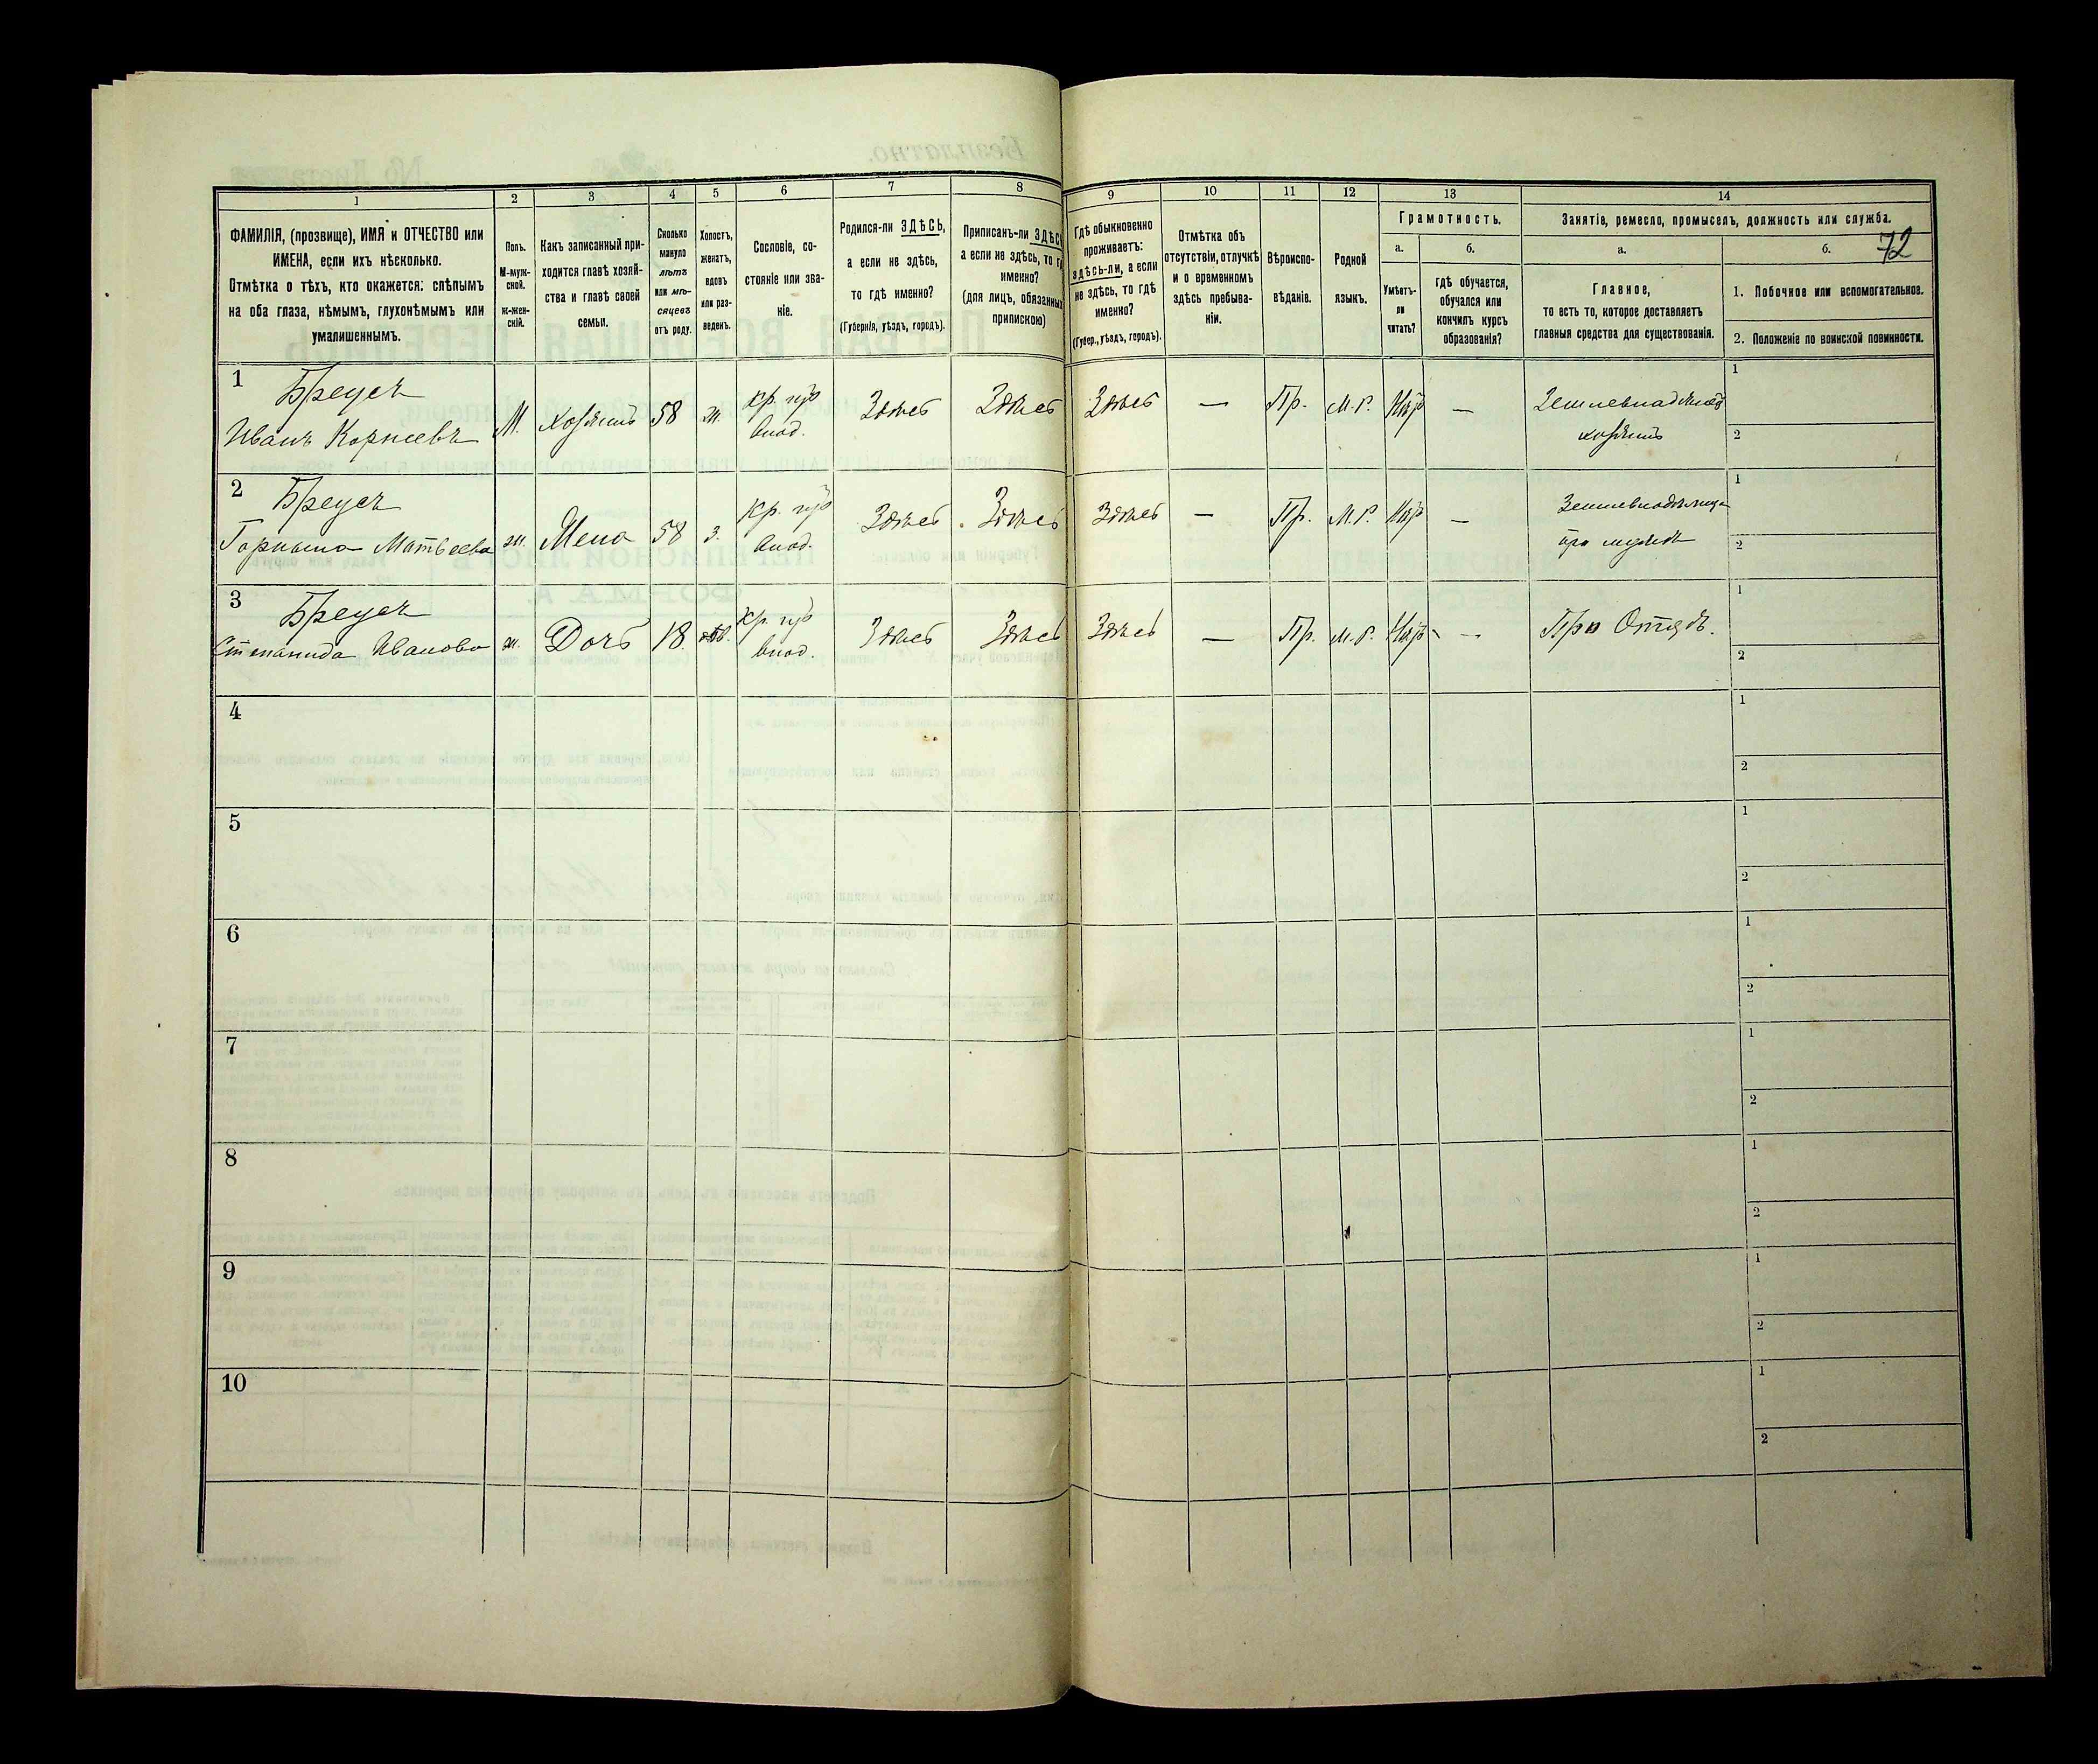 1 2 3 4 5 6 7 8 9 10 11 12 13 14
ФАМИЛІЯ, (прозвище), ИМЯ и ОТЧЕСТВО или
ИМЕНА, если ихъ нѣсколько.
Отмѣтка о тѣхъ, кто окажется: слѣпымъ
на оба глаза, нѣмымъ, глухонѣмымъ или
умалишеннымъ.
Полъ.
М-муж-
ской.
Ж-жен-
скій.
Какъ записанный при-
ходится главѣ хозяй-
ства и главѣ своей
семьи.
Сколько
минуло
лѣтъ
или мѣ-
сяцевъ
отъ роду.
Холостъ,
женатъ,
вдовъ
или раз-
веденъ.
Сословіе, со-
стояніе или зва-
ніе.
Родился-ли ЗДѢСЬ,
а если не здѣсь,
то гдѣ именно?
(Губернія, уѣздъ, городъ).
Приписанъ-ли
а если не здѣсь, то
именно?
(для лицъ, обязанныхъ
припискою)
Гдѣ обыкновенно
проживаетъ:
здѣсь-ли, а если
не здѣсь, то гдѣ
именно?
(Губер., уѣздъ, городъ).
Отмѣтка объ
отсутствіи, отлучкѣ
и о временномъ
здѣсь пребыва-
ніи.
Вѣроиспо-
вѣданіе.
Родной
языкъ.
Грамотность.
а.
Умѣетъ-
ли
читать?
б.
гдѣ обучается,
обучался или
кончилъ курсъ
образованія?
Занятіе, ремесло, промыселъ, должность или служба.
72
а.
Главное,
то есть то, которое доставляетъ
главныя средства для существованія.
б.
1. Побочное или вспомогательное.
2. Положеніе по воинской повинности.
1
Бреусъ
Иванъ Корнеевъ
М. Хозяинъ 58 ж. кр.
влад.
Здѣсь Здѣсь Здѣсь — Пр. М.Р. —
хозяинъ
1
2
2
Бреусъ
Матвеева
ж. Жена 58 з. кр.
влад.
Здѣсь Здѣсь Здѣсь — Пр. М.Р. —
при мужѣ
1
2
3
Бреусъ
Степанида Иванова
ж. Дочь 18. кр.
влад.
Здѣсь Здѣсь Здѣсь — Пр. М.Р. —
При Отцѣ.
1
2
4
1
2
5
1
2
6
1
2
7
1
2
8
1
2
9
1
2
10
1
2